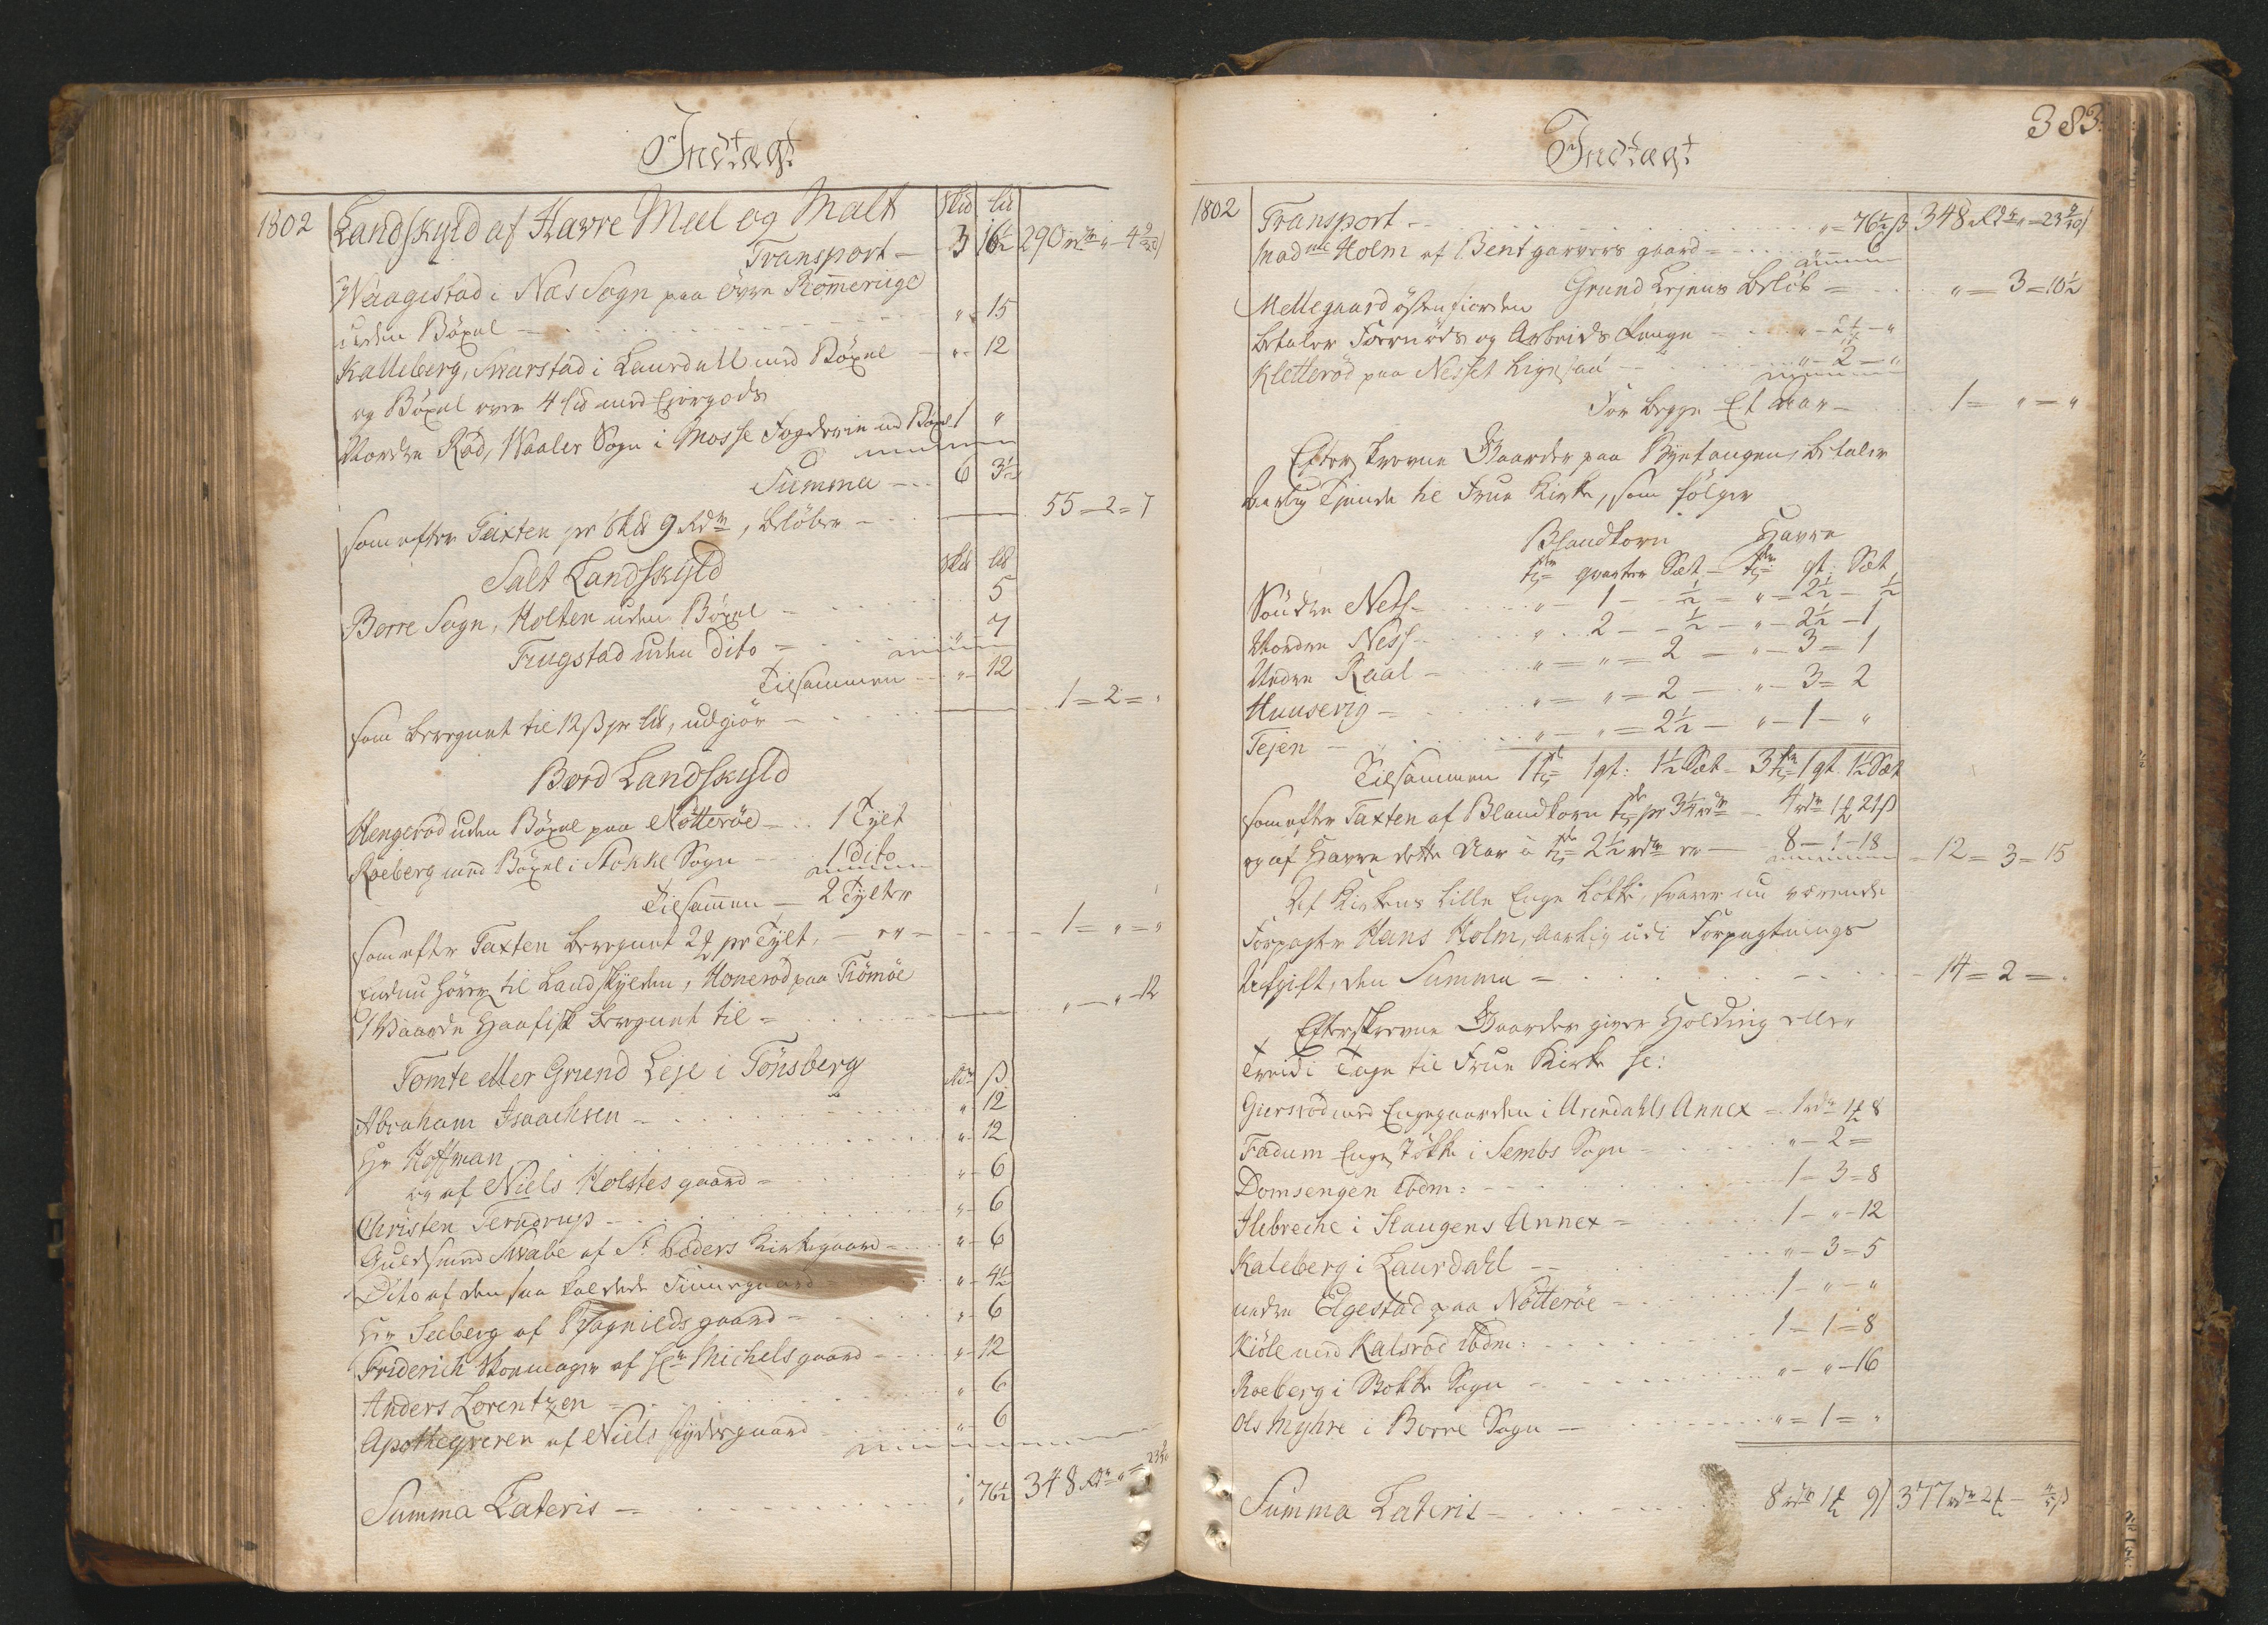 Indtægt
1802 Landskyld af Havre Meel og Malt Skd Lid
Transport – 3 16½ 290 rdr „ – 4 9/20 ß
Waagestad i Nas Sogn paa öfre Romerrige
uden Böxel – „ – 15
Kalleberg, Svarstad i Laurdall med Böxel – „ – 12
og Böxel over 4 lid med Ejergods
Nordre Röd, Waaler Sogn i Mosse Fogderie ud Böxel 1 „
Summa – 6 3½
som efter Taxten pr Skd 9 Rdr, beløber – 55 = 2 = 7
Salt Landskyld Skd Lid
Borre Sogn, Holten uden Böxel – 5
Frugstad uden dito = „ – 7
Tilsammen – „ – 12
som beregnet til 12 ß pr Lid, udgiör – 1 = 2 = „
Bord Landskyld
Hengerod uden Böxel paa Nötteröe – 1 Tylt
Roeberg med Böxel i Stokke Sogn – 1 dito
Tilsammen – 2 Tylter
som efter Taxten beregnet 2 pr Tylt, – er – 1 = „ = „
Endnu hörer til Landskylden, Honerod paa Tiömöe
1 Waarde Haafisk beregnet til = „ – „ – 12
Tomte eller Grund Leje i Tönsberg Rdr ß
Abraham Isaachsen – „ 12
Hr Hoffman „ – 12
og af Niels Holstes gaard – „ – 6
Christen Terndrup – „ – 6
Guldsmed Swabe af St Peders Kirkegaard – „ – 6
Dito af den saa kaldede Finnegaard – „ – 4½
Hr Seeberg af Ragnilds gaard – „ – 6
Friderich Skomager af Sr Michels gaard – „ – 12
Anders Lorentzen – „ 6
Apothequeren af Niels gaard „ – 6
Summa Lateris – „ 76½ 348 Rdr „ = 23 9/20
383
Indtægt
1802 Transport – „ = 76½ ß 348 Rdr „ = 23 9/20 ß
Madme Holm af Bent garvers gaard – 6
Grund Lejens beløb – „ = 3 = 10½
Mellegaard östenfiorden
betaler Foernöds og Arbeids Penge – „ – 2 – „
Kletteröd paa Nesset ligesaa – „ – 2 – „
For begge Et Aar – 1 = „ = „
Efterskrevne Gaarder paa Byetangen, betaler
aarlig Tiende til Frue Kirke, som følger
Blandkorn Havre
tr qvarter Sæt – tr qt: Sæt
Söndre Ness – „ – 1 – ½ = „ = 2½ – ½
Nordre Ness – „ . 2 – ½ – „ – 2½ – 1
Nedre Raal – „ = „ = 2 – „ – 3 = 1
Huusevig – „ = „ = 2 – „ – 3 = 2
Tejen – „ – „ = 2½ – „ – 1 – „
Tilsammen 1 tr 1 qt: 1½ Sæt – 3 tr 1 qt. 1½ Sæt
som efter Taxten af Blandkorn tr pr 3¼ rdr – 4 rdr 1 21 ß
og af Havre dette Aar à tr 2½ rdr er – 8 – 1 – 18 – 12 = 3 = 15
Af Kirkens lille Enge Løkke, svarer nu værende
Forpagter Hans Holm, aarlig udi Forpagtnings
Afgift, den Summa = 14 = 2 = „
Efterskrevne Gaarder giver Holding eller
Tredie Tage til Frue Kirke se:
Giersrod med Engegaarden i Arendahls Annex – 1 rdr 1 8
Fadum Enge Løkke i Sembs Sogn – „ – 2 =
Domsengen ibdm: – 1 – 3 = 8
Ilebreche i Slaugens Annex – 1 – „ – 12
Kaleberg i Laurdahl – „ – 3 = 5
nedre Elgestad paa Nötteröe – 1 – „ – „
Kiöle med Kalsrod ibdm: 1 – 1 = 8
Roeberg i Stokke Sogn – „ – „ – 16
Ols Myhre i Borre Sogn – „ = 1 = „
Summa Lateris – 8 rdr 1 9 ß 377 rdr 2 – ß